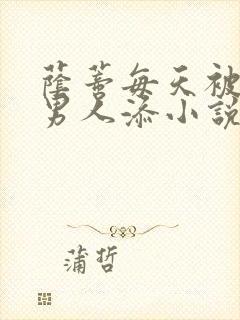 蔭蒂每天被
男人添小説
蒲哲